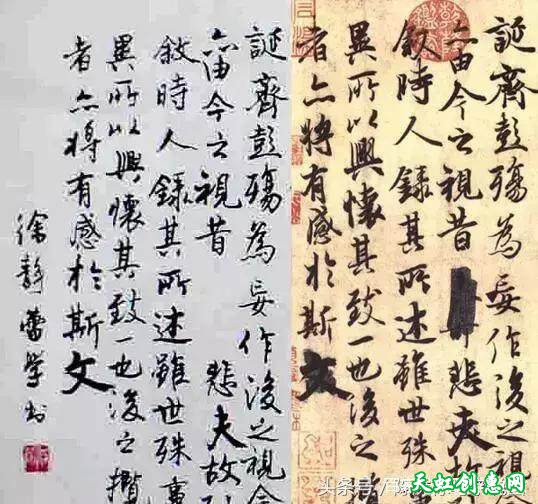 誕齊彭殤為妄作後之視今
亦由今之視昔 悲夫故列
敘時人錄其所述雖世殊事
異所以興懷其致一也後之攬
者亦將有感於斯文
徐静蕾学书
誕齊彭殤為妄作後之視
亦由今之視昔悲夫故
敘時人錄其所述雖世殊
異所以興懷其致一也後之
者亦將有感於斯文
头条号
天虹创意网